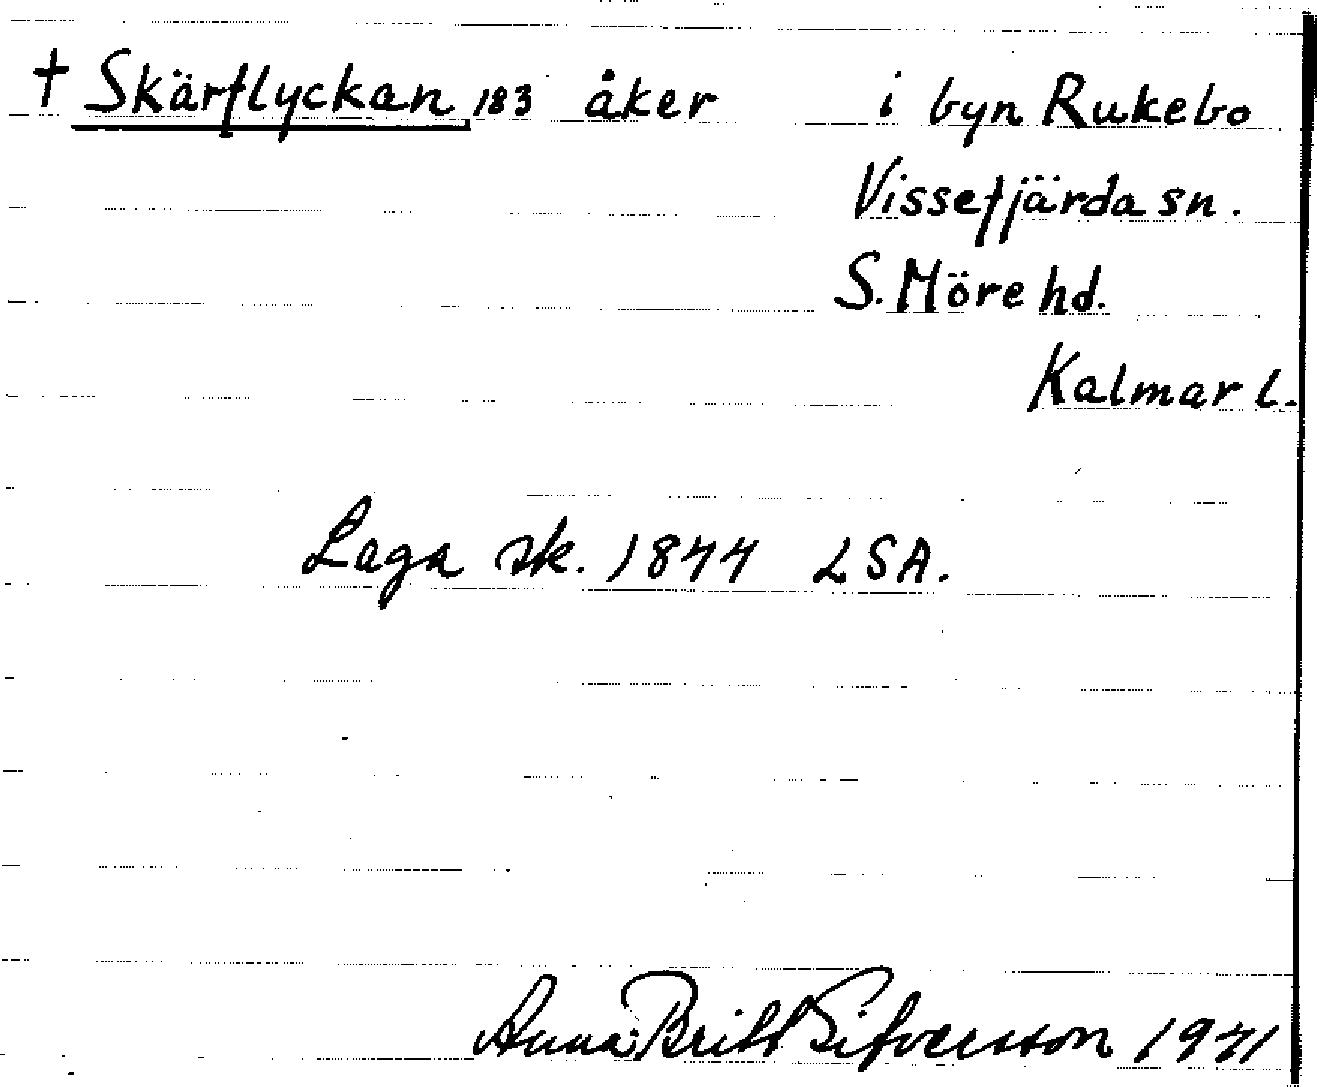 † Skärflyckan 183 åker i byn Rukebo
Vissefjärda sn.
S. Möre hd.
Kalmar l.
Laga sk. 1844 LSA.
Anna Britt Sifversson 1941